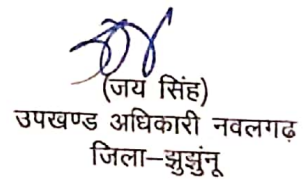 (जय सिंह)
उपखण्ड अधिकारी नवलगढ़
जिला–झुझुंनू